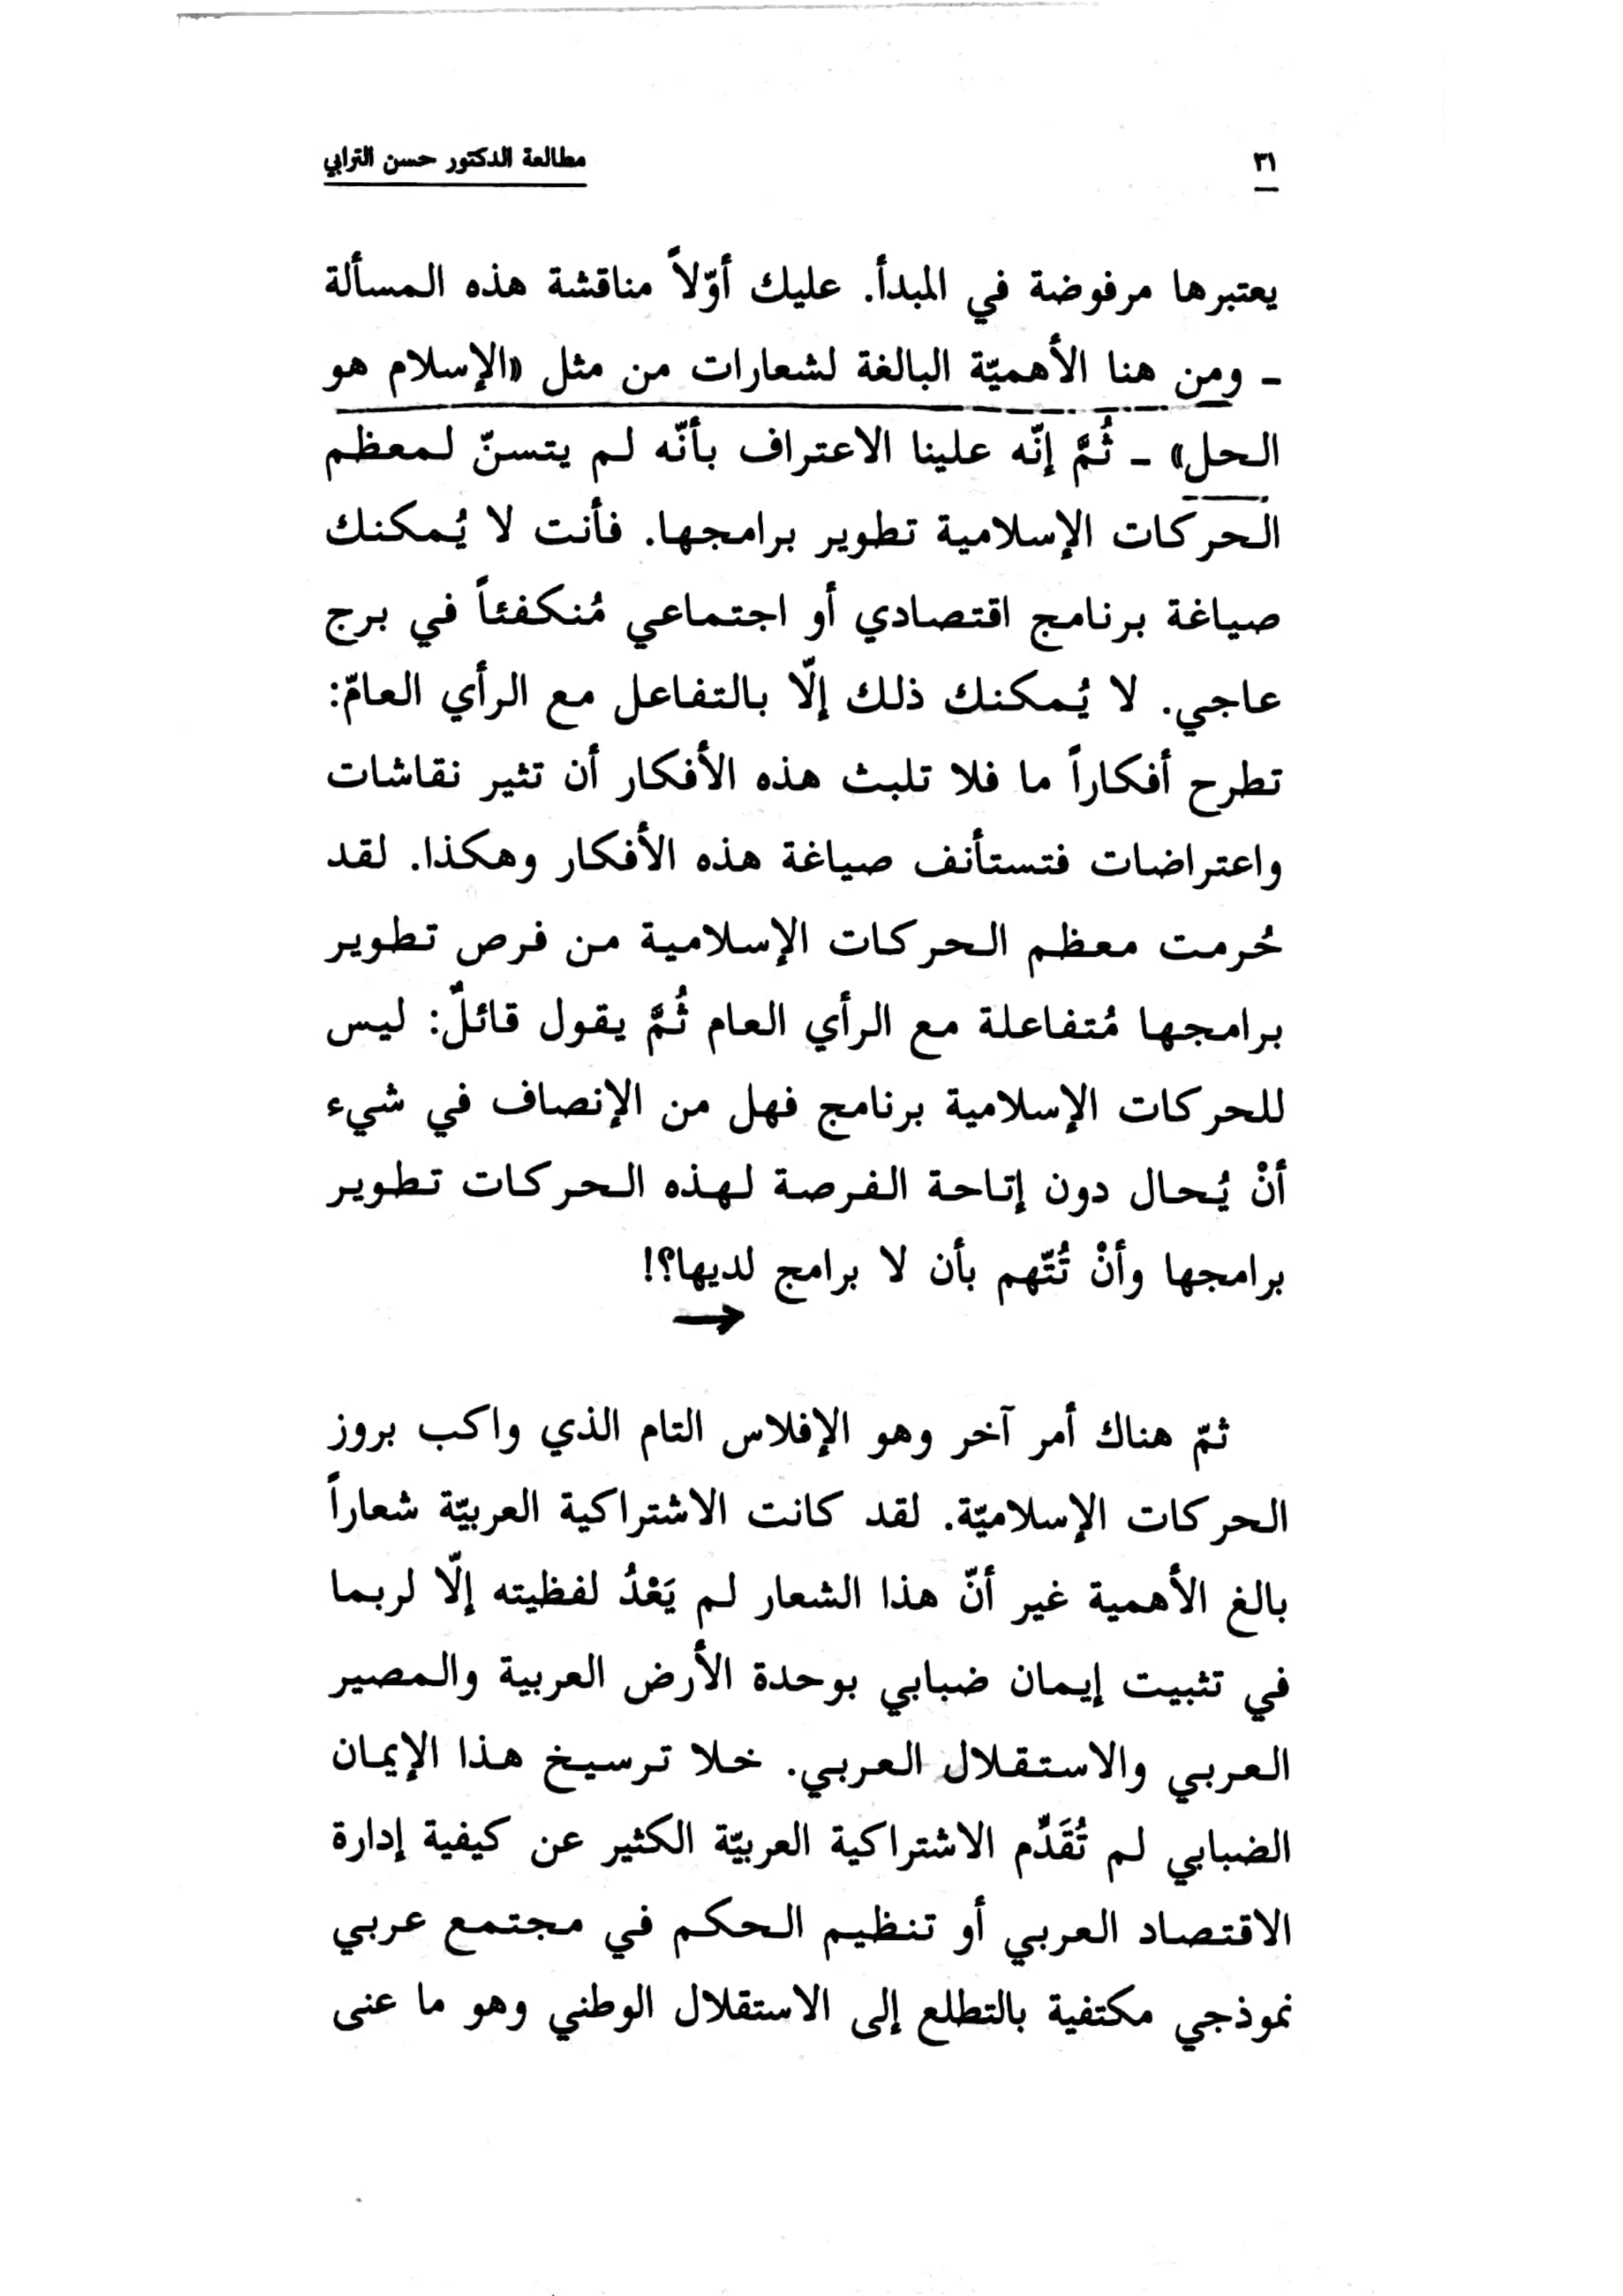 ٣١
مطالعة الدكتور حسن الترابي
يعتبرها مرفوضة في المبدأ. عليك أوّلاً مناقشة هذه المسألة
ـ ومن هنا الأهميّة البالغة لشعارات من مثل «الإسلام هو
الحل» ـ ثُمَّ إنّه علينا الاعتراف بأنّه لم يتسنّ لمعظم
الحركات الإسلامية تطوير برامجها. فأنت لا يُمكنك
صياغة برنامج اقتصادي أو اجتماعي مُنكفئاً في برج
عاجي. لا يُمكنك ذلك إلّا بالتفاعل مع الرأي العامّ:
تطرح أفكاراً ما فلا تلبث هذه الأفكار أن تثير نقاشات
واعتراضات فتستأنف صياغة هذه الأفكار وهكذا. لقد
حُرمت معظم الحركات الإسلامية من فرص تطوير
برامجها مُتفاعلة مع الرأي العام ثُمَّ يقول قائلٌ: ليس
للحركات الإسلامية برنامج فهل من الإنصاف في شيء
أنْ يُحال دون إتاحة الفرصة لهذه الحركات تطوير
برامجها وأنْ تُتّهم بأن لا برامج لديها؟!
ثمّ هناك أمر آخر وهو الإفلاس التام الذي واكب بروز
الحركات الإسلاميّة. لقد كانت الاشتراكية العربيّة شعاراً
بالغ الأهمية غير أنّ هذا الشعار لم يَعْدُ لفظيته إلّا لربما
في تثبيت إيمان ضبابي بوحدة الأرض العربية والمصير
العربي والاستقلال العربي. خلا ترسيخ هذا الإيمان
الضبابي لم تُقَدِّم الاشتراكية العربيّة الكثير عن كيفية إدارة
الاقتصاد العربي أو تنظيم الحكم في مجتمع عربي
نموذجي مكتفية بالتطلع إلى الاستقلال الوطني وهو ما عنى